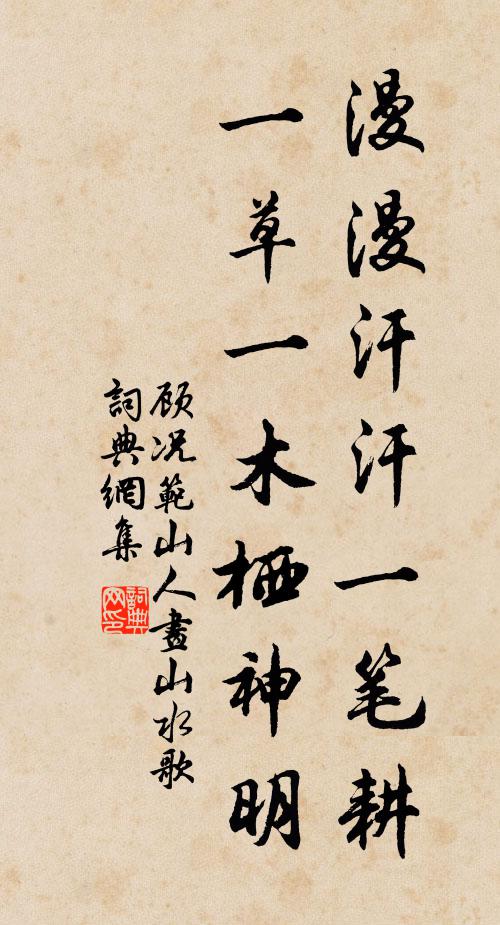 漫漫汗汗一笔耕
一草一木栖神明
顾况範山人畫山水歌
詞典網集
詞典网印